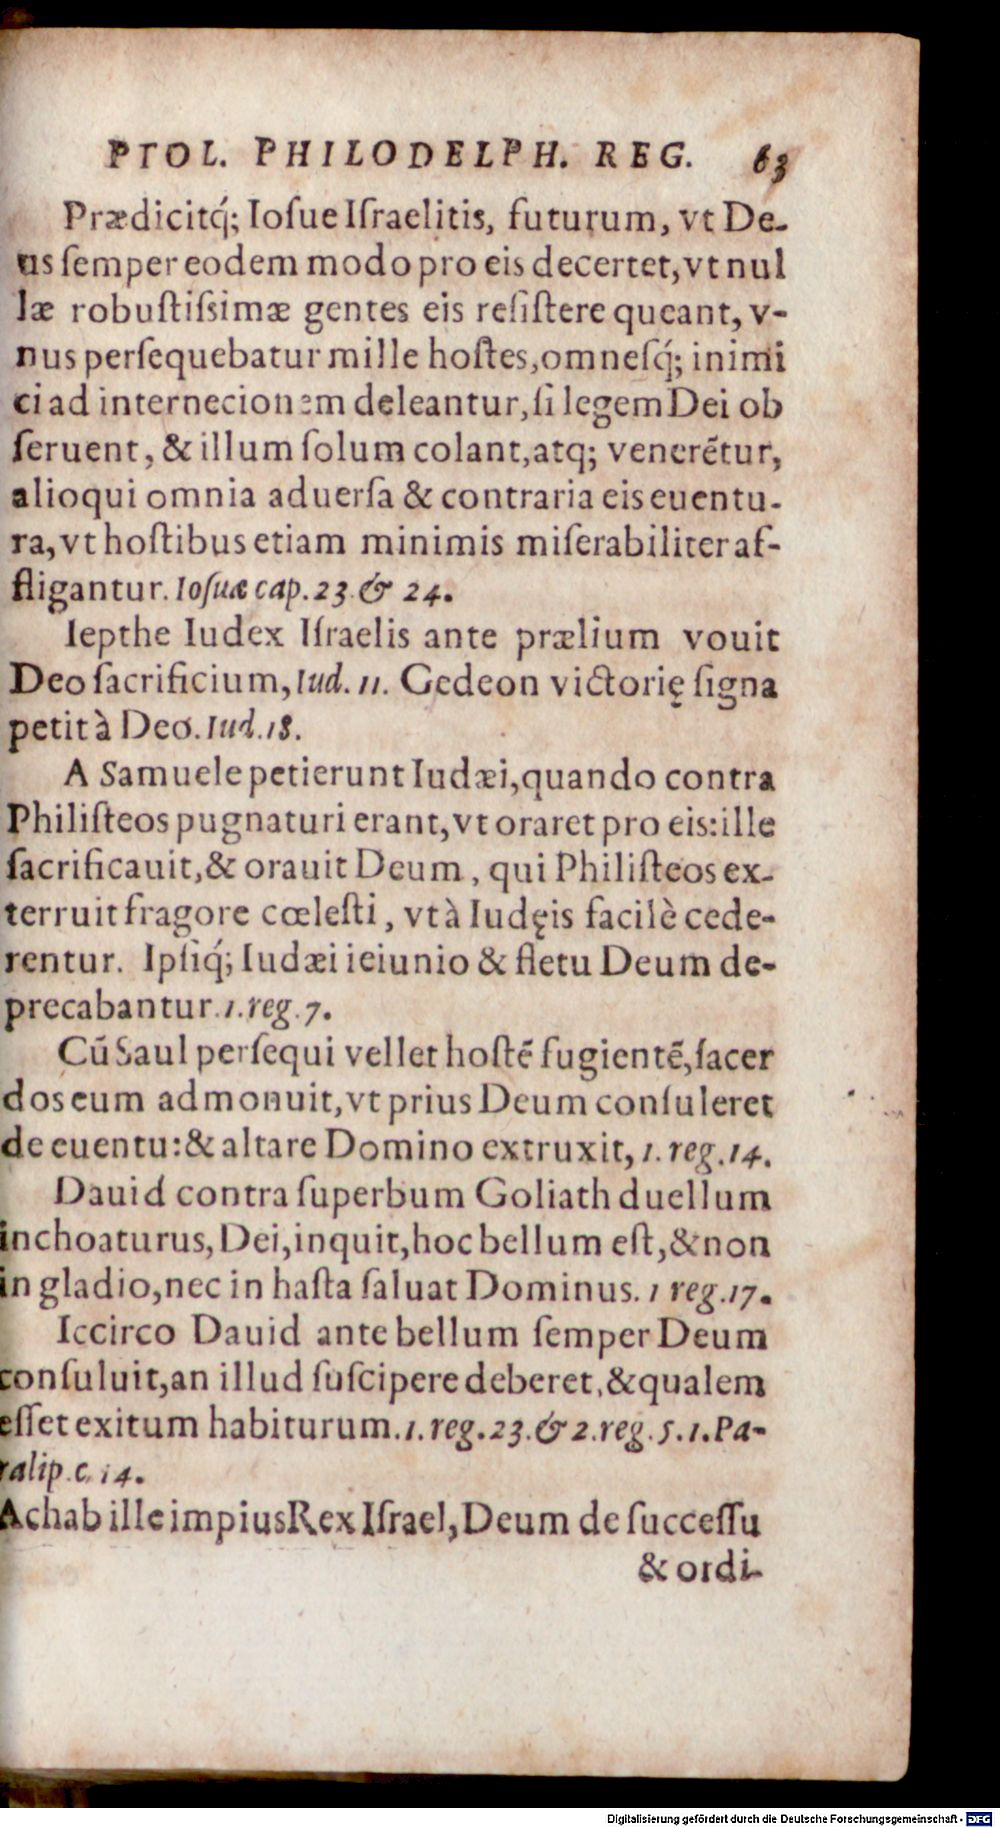 PTOL. PHILODELPH. REG. 63
Prædicitq́; Ioſue Iſraelitis, futurum, vt De-
us ſemper eodem modo pro eis decertet, vt nul
læ robuſtiſsimæ gentes eis reſiſtere queant, v-
nus perſequebatur mille hoſtes, omneſq́; inimi
ci ad internecionem deleantur, ſi legem Dei ob
ſeruent, & illum ſolum colant, atq; venerẽtur,
alioqui omnia aduerſa & contraria eis euentu-
ra, vt hoſtibus etiam minimis miſerabiliter af-
fligantur. Ioſuæ cap. 23. & 24.
Iepthe Iudex Iſraelis ante prælium vouit
Deo ſacrificium, Iud. 11. Gedeon victorię ſigna
petit à Deo. Iud. 18.
A Samuele petierunt Iudæi, quando contra
Philiſteos pugnaturi erant, vt oraret pro eis: ille
ſacrificauit, & orauit Deum, qui Philiſteos ex-
terruit fragore cœleſti, vt à Iudęis facilè cede-
rentur. Ipſiq́; Iudæi ieiunio & fletu Deum de-
precabantur. 1. reg. 7.
Cũ Saul perſequi vellet hoſtẽ fugientẽ, ſacer
dos eum admonuit, vt prius Deum conſuleret
de euentu: & altare Domino extruxit, 1. reg. 14.
Dauid contra ſuperbum Goliath duellum
inchoaturus, Dei, inquit, hoc bellum eſt, & non
in gladio, nec in haſta ſaluat Dominus. 1 reg. 17.
Iccirco Dauid ante bellum ſemper Deum
conſuluit, an illud ſuſcipere deberet, & qualem
eſſet exitum habiturum. 1. reg. 23. & 2. reg. 5. 1. Pa-
ralip. c. 14.
Achab ille impius Rex Iſrael, Deum de ſucceſſu
& ordi-
Digitalisierung gefördert durch die Deutsche Forschungsgemeinschaft - DFG